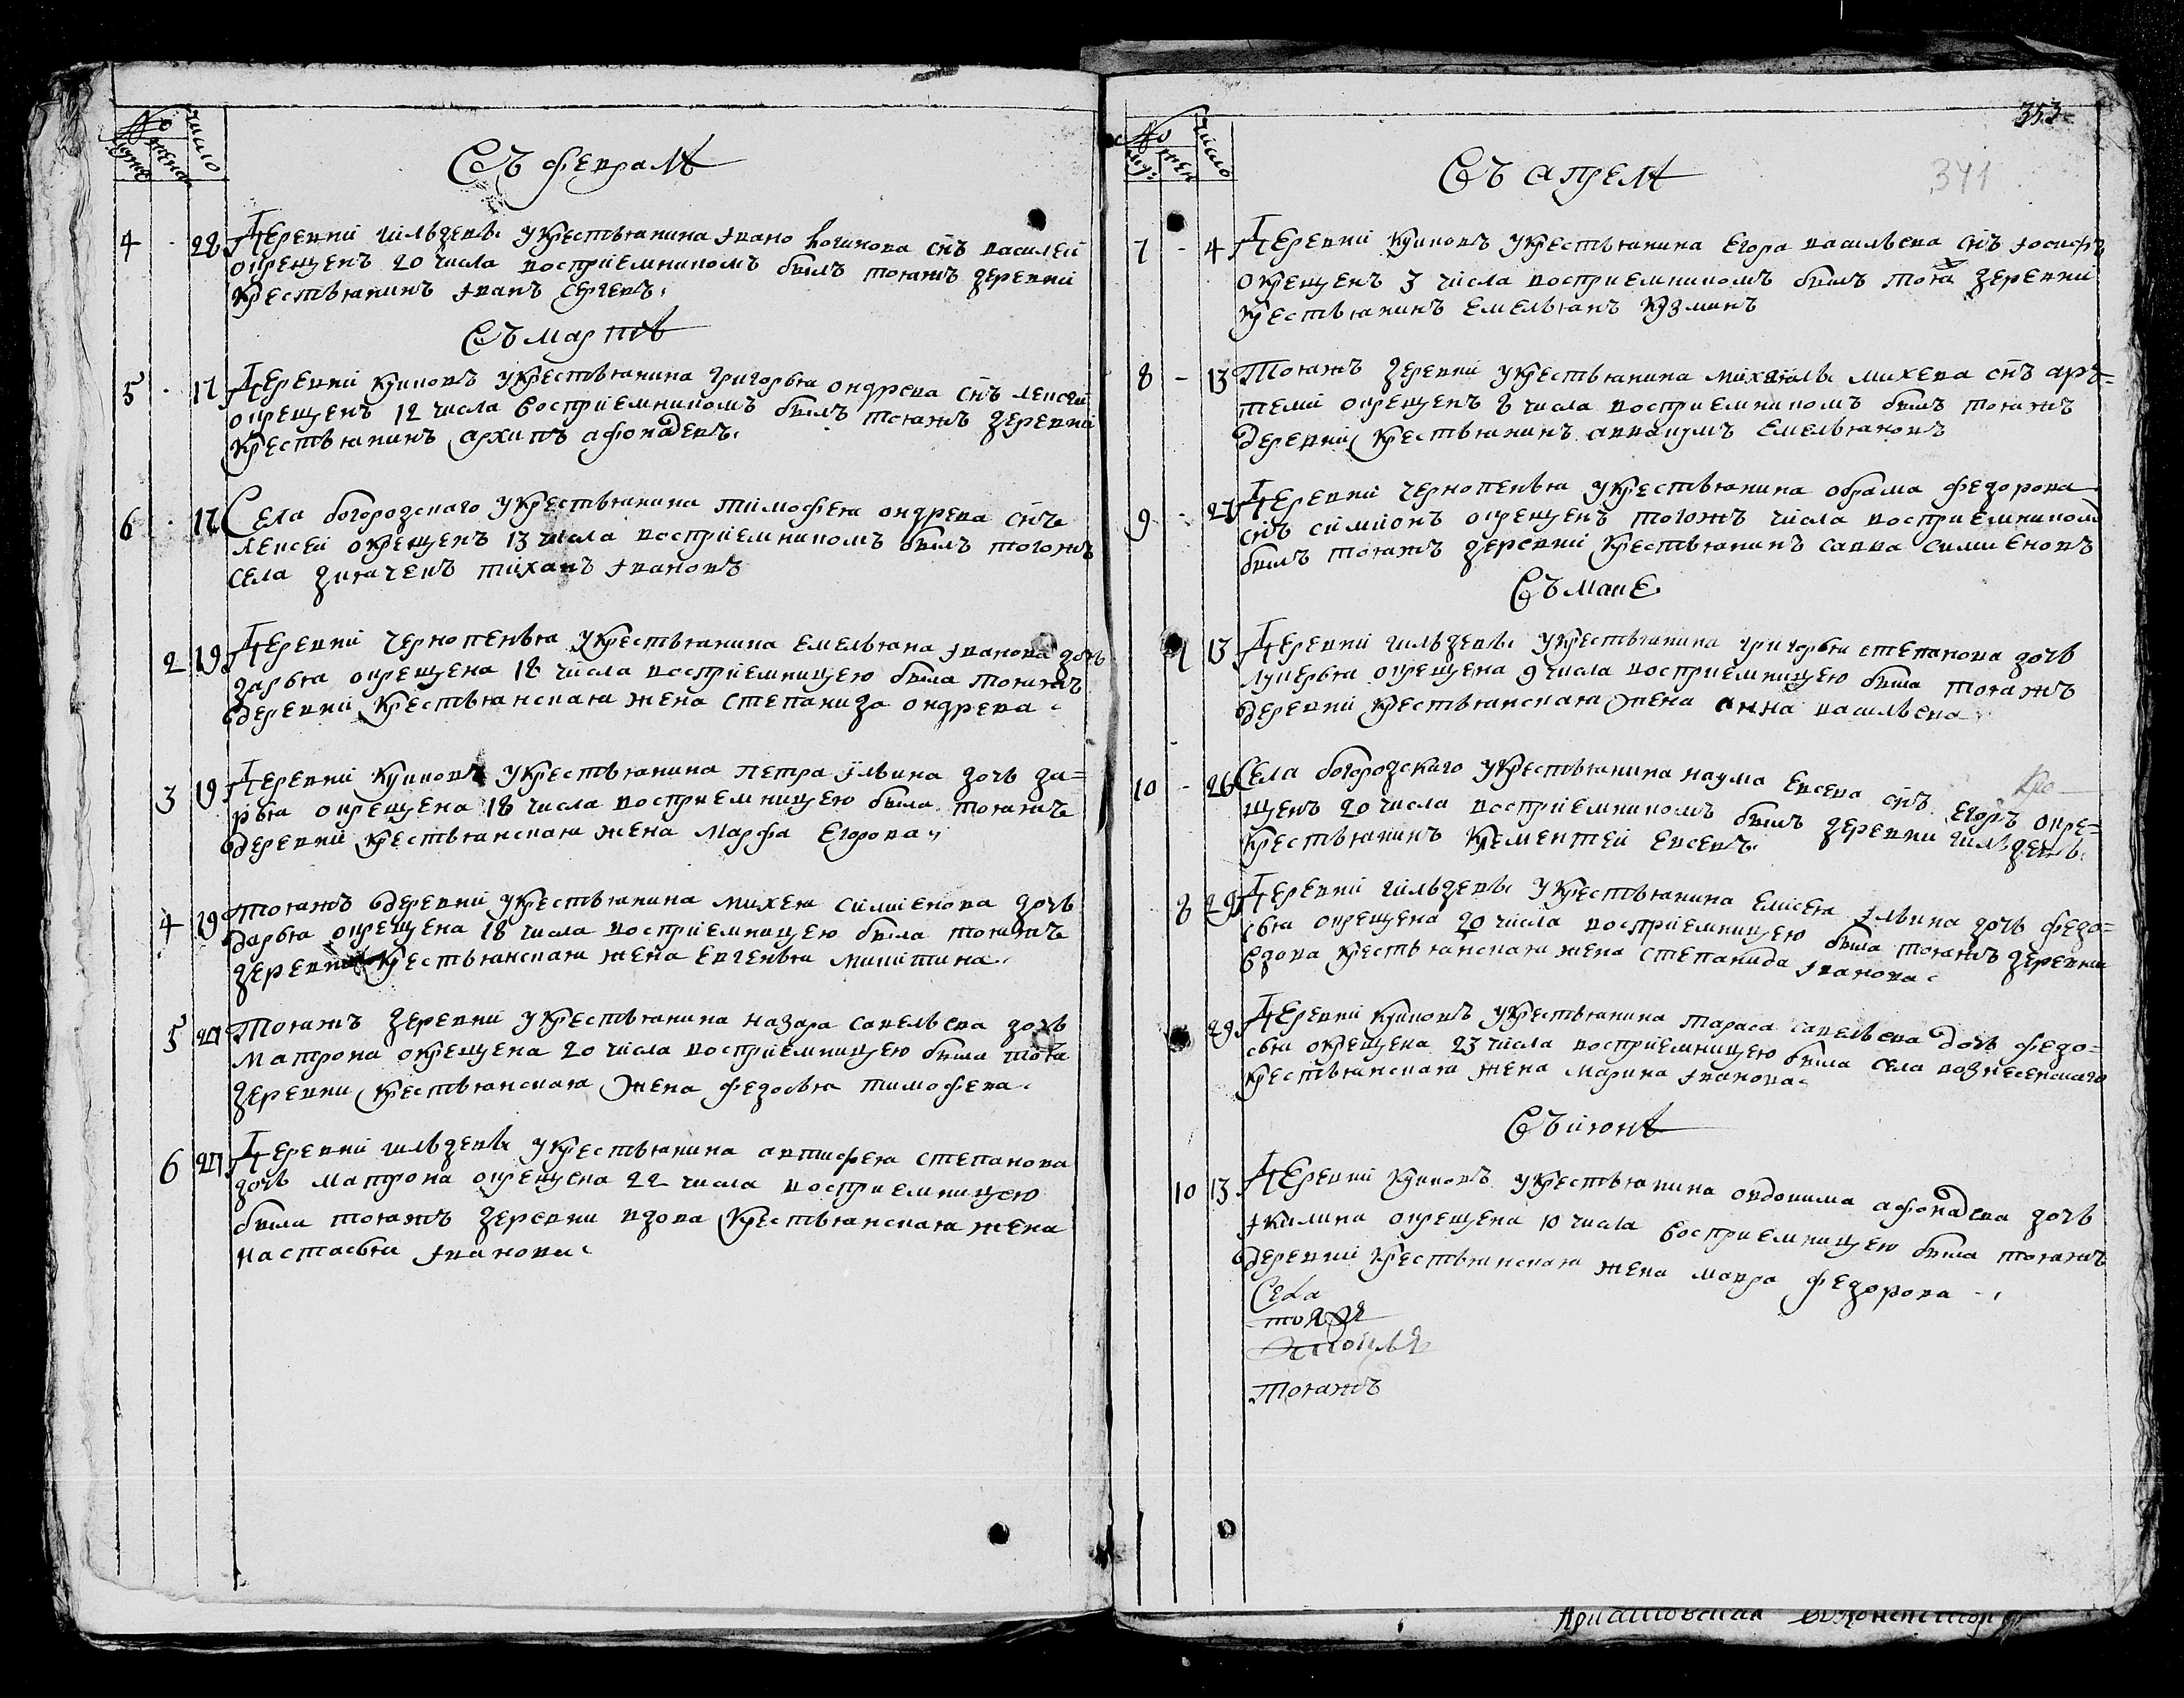 №
мужс
женс
число
Съ февралѣ
4 - 28 Деревни гилѣдевы у крестьянина Ивано Логинова снъ василей
окрещенъ 20 числа восприемникомъ былъ тояжъ деревни
крестьянинъ Иванъ Сергевъ
Съ мартѣ
5 - 17 Деревни Куиковъ у крестьянина Григорья ондрева снъ лексей
окрещенъ 12 числа восприемникомъ былъ тояжъ деревни
крестьянинъ архипъ афонадевъ
6 - 17 Села богородскаго у крестьянина тимофея ондрева снъ
лексей окрещенъ 13 числа восприемникомъ былъ тогожъ
села дьячекъ тиханъ Ивановъ
2 19 Деревни Чернопенья у крестьянина емельяна Иванова дочь
дарья окрещена 18 числа восприемницею была тояжъ
деревни крестьянская жена степанида ондрева
3 19 Деревни Куиковъ у крестьянина петра Ильина дочь да=
рья окрещена 18 числа восприемницею была тояжъ
деревни крестьянская жена Марфа Егорова
4 19 тояжъ деревни у крестьянина михея симиенова дочь
дарья окрещена 18 числа восприемницею была тояжъ
деревни крестьянская жена евгенья микитина
5 27 Тояжъ деревни у крестьянина назара савельева дочь
матрона окрещена 20 числа восприемницею была тояж
деревни крестьянская жена федосья тимофева
6 27 Деревни гилѣдевы у крестьянина актисфея степанова
дочь матрона окрещена 22 числа восприемницею
была тояжъ деревни вдова крестьянская жена
настасья Иванова
353
341
№
муж
жен
число
Съ апрелѣ
7 - 4 Деревни Куиковъ у крестьянина Егора васильева снъ Иосифъ
окрещенъ 3 числа восприемникомъ былъ тояж деревни
крестьянинъ емельянъ Кузминъ
8 - 13 Тояжъ деревни у крестьянина михаилы михева снъ арь=
темей окрещенъ 8 числа восприемникомъ былъ тояжъ
деревни крестьянинъ аввакумъ емельяновъ
9 - 27 Деревни чернопенья у крестьянина обрама федорова
снъ симионъ окрещенъ тогожъ числа восприемникомъ
былъ тояжъ деревни крестьянинъ савва симиеновъ
Съ маие
7 13 Деревни гилѣдевы у крестьянина григорья степанова дочь
лукерья окрещена 9 числа восприемницею была тояжъ
деревни крестьянская жена анна васильева
10 - 26 Села богородскаго у крестьянина наума евсева снъ егоръ окре=
щенъ 20 числа восприемникомъ былъ деревни гилѣдевы
крестьянинъ Клементей евсевъ
8 29 Деревни гилѣдевы у крестьянина елисея Ильина дочь федо=
сья окрещена 20 числа восприемницею была тояжъ деревни
вдова крестьянская жена степанида Иванова
29 Деревни Куиковъ у крестьянина тараса савельева дочь федо=
сья окрещена 23 числа восприемницею была села вознесенскаго
крестьянская жена марина Иванова
Съ июнѣ
10 13 Деревни Куиковъ у крестьянина овдокима афонадева дочь
Акилина окрещена 10 числа восприемницею была тояжъ
деревни крестьянская жена мавра федорова
Села
тояжъ